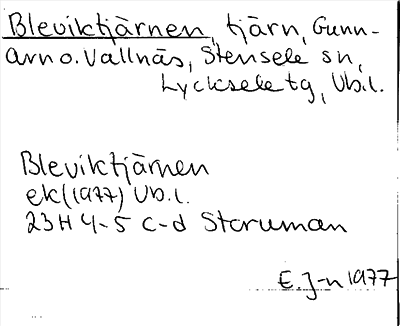 Bleviktjärnen, tjärn, Gunn-
arn o. Vallnäs, Stensele sn,
Lycksele tg, Vb.l.
Bleviktjärnen
ek(1977) Vb.l.
23H 4-5 c-d Storuman
E.J-n 1977